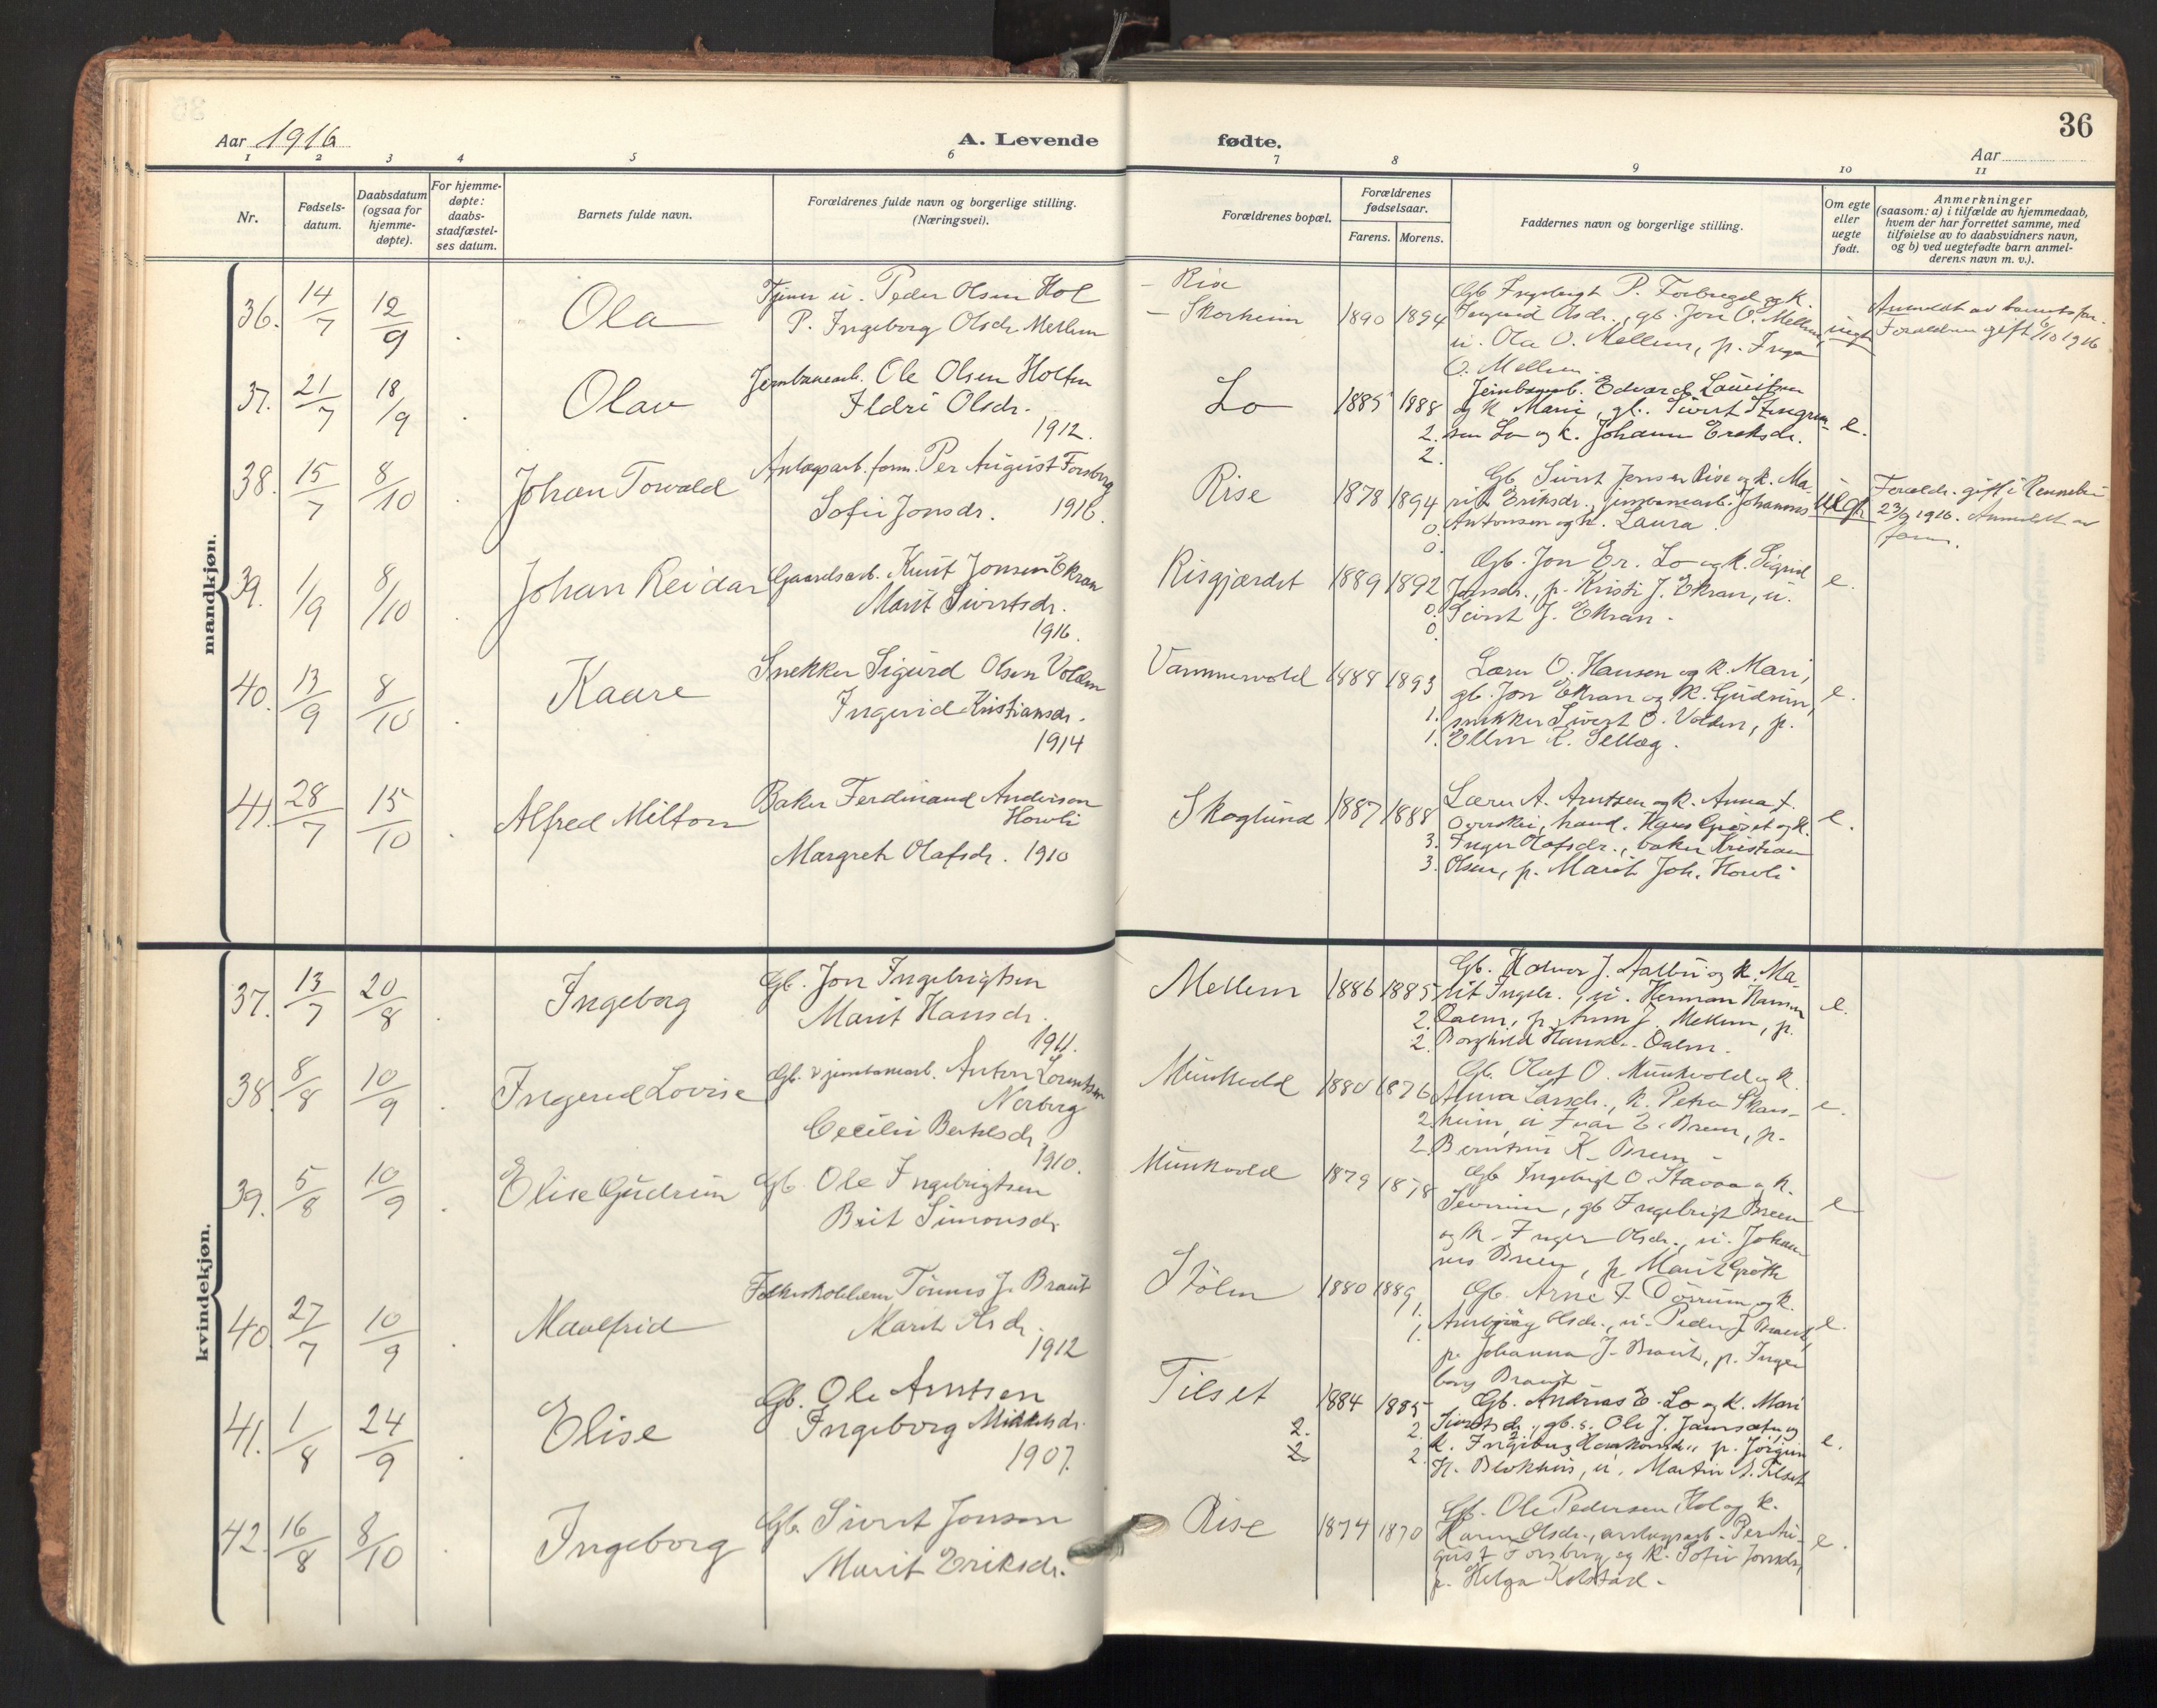 36
Aar 1916
A. Levende
fødte.
Aar
1 2 3 4 5 6 7 8 9 10 11
Nr.
Fødsels-
datum.
Daabsdatum
(ogsaa for
hjemme-
døpte).
For hjemme-
døpte:
daabs-
stadfæstel-
ses datum.
Barnets fulde navn.
Forældrenes fulde navn og borgerlige stilling.
(Næringsvei).
Forældrenes bopæl.
Forældrenes
fødselsaar.
Farens. Morens.
Faddernes navn og borgerlige stilling.
Om egte
eller
uegte
født.
Anmerkninger
(saasom: a) i tilfælde av hjemmedaab,
hvem der har forrettet samme, med
tilføielse av to daabsvidners navn,
og b) ved uegtefødte barn anmel-
derens navn m. v.).
mandkjøn.
36. 14/7 12/9 Ola
Tjener u. Peder Olsen Hol
P. Ingeborg Olsdr. Mellem
Rise
Skorheim 1890 1894
Gb Ingebrigt P. Forbregd og k.
Ingrid Olsdr., gb. Jon O. Mellem,
u. Ola O. Mellem, p. Inga
O. Mellem
uegte
Anmeldt av barnets far.
Forældrene gift 6/10 1916
37. 21/7 18/9 Olav
Jernbanearb. Ole Olsen Holten
Ildri Olsdr.
1912.
Lo 1885 1888
2.
2.
Jernbanearb. Edvard Lauritsen
og k Marie, gb. Sivert Stengrim-
sen Lo og k. Johanna Eriksdr.
e.
38. 15/7 8/10 Johan Torvald
Anlægsarb. form. Per August Forsberg
Sofie Jonsdr. 1916.
Rise 1878 1894
0.
0.
Gb Sivert Jonsen Rise og k. Ma-
rit Eriksdr., jernbanearb. Johannes
Antonsen og k. Laura
uegte
Forældr. gift i Rennebu
23/9 1916. Anmeldt av
faren.
39. 1/9 8/10 Johan Reidar
Gaardsarb. Knut Jonsen Ekran
Marit Sivertsdr.
1916.
Risgjærdet 1889 1892
0.
0.
Gb. Jon Er. Lo og k. Sigrid
Jonsdr., p. Kristi J. Ekran, u.
Sivert J. Ekran.
e.
40. 13/9 8/10 Kaare
Snekker Sigurd Olsen Volden
Ingerid Kristiansdr.
1914
Vammervold 1888 1893
1.
1.
Lærer O. Hansen og k. Mari,
gb. Jon Ekran og k. Gudrun,
snekker Sivert O. Volden, p.
Ellen K. Sellæg.
e.
41. 28/7 15/10 Alfred Milton
Baker Ferdinand Andersen
Hovli
Margreth Olafsdr. 1910
Skoglund 1887 1888
3.
3.
Lærer A. Arntzen og k. Anna f.
hand. Hans Grøset og k.
Inger Olafsdr., baker Kristian
Olsen, p. Marit Joh. Hovli
e.
kvindekjøn.
37. 13/7 20/8 Ingeborg
Gb. Jon Ingebrigtsen
Marit Hansdr.
1911.
Mellem 1886 1885
2.
2.
Gb. Halvor J. Aalbu og k. Ma-
rit Ingebr., u. Herman Hansen
Dalen, p. Anne J. Mellem, p.
Borghild Hansdr. Dalen.
e.
38. 8/8 10/9 Ingerid Lovise
Gb. & jernbanearb. Anton Lorentsen
Norberg
Cecilie Bertelsdr.
1910.
Munkvold 1880 1876
2.
2.
Gb. Oluf O. Munkvold og k.
Anna Larsdr., k. Petra Skars-
heim, u Ivar E. Breen, p.
Berntine K. Breen
e.
39. 5/8 10/9 Elise Gudrun
Gb. Ole Ingebrigtsen
Brit Simonsdr.
Munkvold 1879 1878
Gb Ingebrigt O. Stavaa og k.
gb Ingebrigt Breen
og k. Inger Olsdr., u. Johan-
nes Breen, p. Marit Grøtte
e
40. 27/7 10/9 Maalfrid
Folkeskolelærer Tønnes J. Braut
Marit Arsdr.
1912
Stølen 1880 1889
1.
1.
Gb. Arne I. Dørrum og k.
Olsdr., u. Peder J. Braut,
p. Johanna J. Braut, p. Inge-
borg Braut
e.
41. 1/8 24/9 Elise
Gb. Ole Arntsen
Ingeborg Mikkelsdr.
1907.
Tilset 1884 1885
2. 2.
2 2.
Gb. Andreas E. Lo og k. Mari
Sivertsdr., gb. s. Ole J. og
k. Ingeborg Haakonsdr., p. Jørgine
H. Blokhus, u. Martin A. Tilset
e.
42. 16/8 8/10 Ingeborg
Gb. Sivert Jonsen
Marit Eriksdr.
Rise 1874 1870
Gb. Ole Pedersen Hol og k.
Karen Olsdr., anlægsarb. Per Au-
gust Forsberg og k. Sofie Jonsdr.,
p. Helga Kolstad.
e.